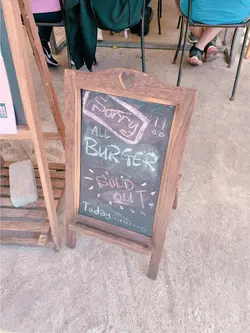 Sorry!!
ALL
BURGER
SOLD
OUT
Today........